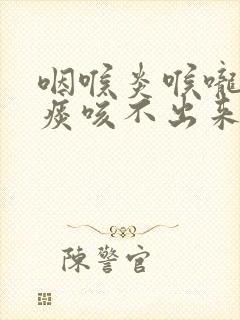 咽喉炎喉嚨
痰咳不出來
陳警官